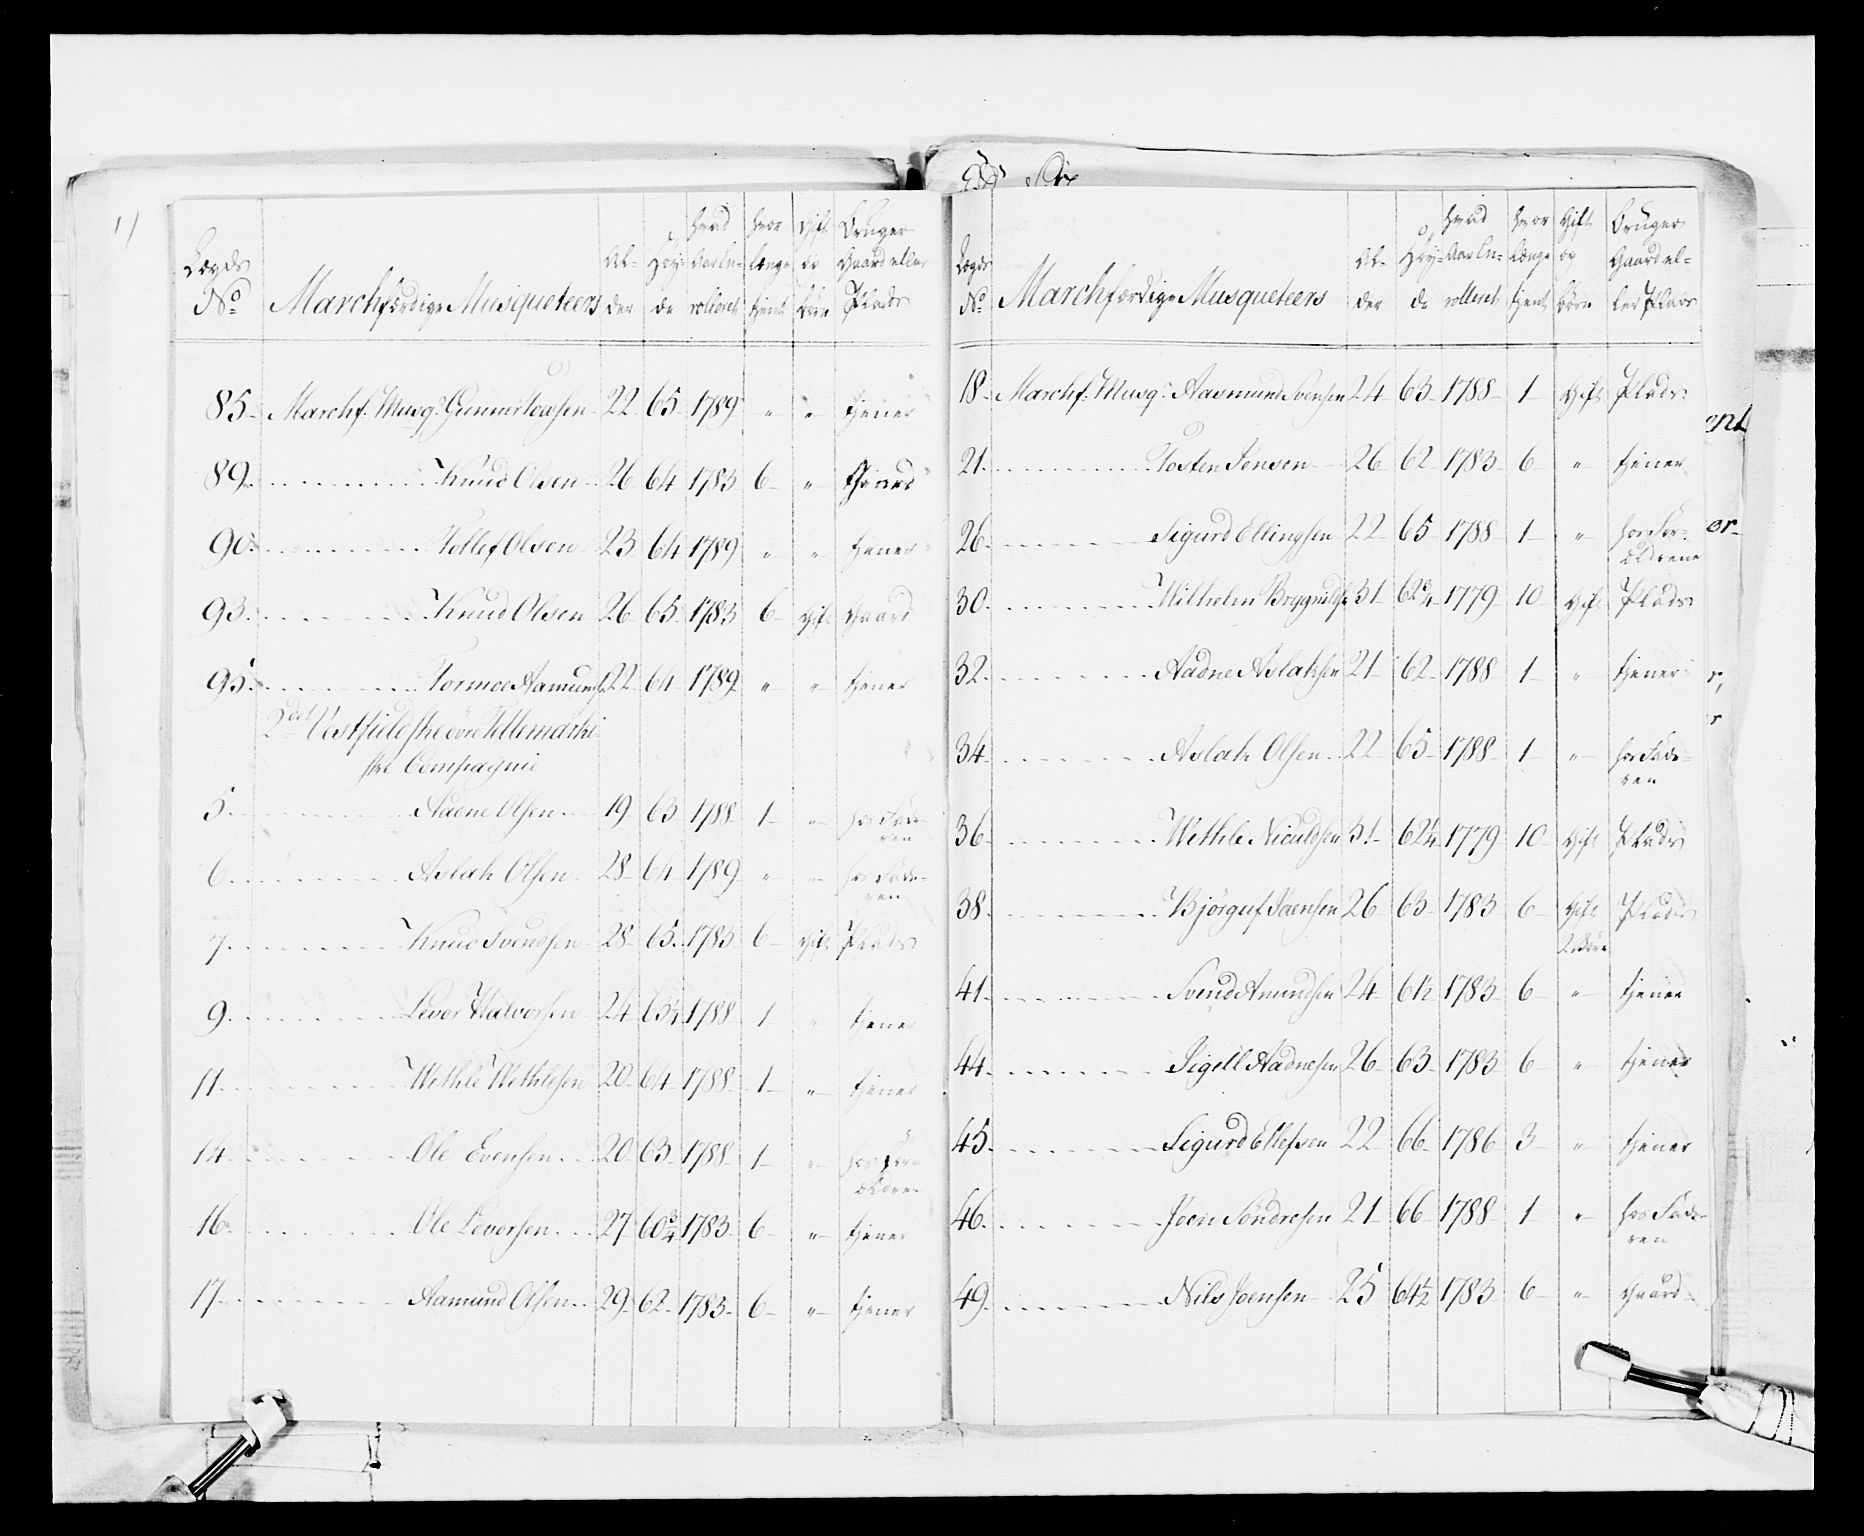 Lægds No Marchfærdige Musqueteers Al- der Høy- de hvad Aar En- rolleret hvor længe tient Gift og Børn Bruger Gaard eller Plads
85. Marchf. Musqr. Gunner Towsen 22 65 1789 " " tiener
89. Knud Olsen 26 64 1783 6 " tiener
90. Tollef Olsen 23 64 1789 " " tiener
93. Knud Olsen 26 65 1783 6 Gift Gaard
95. Tormoe Aamunds. 22 64 1789 " " tiener
2det Vestfieldske övre Tellemarki
ske Compagnie
5. Aadne Olsen 19 63 1788 1 " hos Fade-
ren
6. Aslak Olsen 28 64 1789 " " hos Fade-
ren
7. Knud Svendsen 28 65 1783 6 Gift Plads
9. Levor Halvorsen 24 63¼ 1788 1 " tiener
11. Wethle Wethlesen 20 64 1788 1 " tiener
14. Ole Evensen 20 63 1788 1 " hos For-
ældre-
16. Ole Levorsen 27 60¾ 1783 6 " tiener
17. Aamund Olsen 29 62 1783 6 " tiener
Lægds No Marchfærdige Musqueteers Al- der Høy- de hvad Aar En- rolleret hvor længe tient Gift og Børn Bruger Gaard el- ler Plads
18. Marchf. Musqr. Aasmund Svensen 24 63 1788 1 Gift Plads
21. Tosten Jensen 26 62 1783 6 " tiener
26. Sigurd Ellingsen 22 65 1788 1 " hos For-
ældrene
30. Wilhelm Brygulds. 31 62¾ 1779 10 Gift Plads
32. Aadne Aslaksen 21 62 1788 1 " tiener
34. Aslak Olsen 22 65 1788 1 " hos Fade-
ren
36. Wethle Niculdsen 31 62¼ 1779 10 Gift Plads
38. Bjørguf Saensen 26 63 1783 6 Gift Plads
2 Børn
41. Svend Amundsen 24 61½ 1783 6 " tiener
44. Sigell Aadnesen 26 63 1783 6 " tiener
45. Sigurd Ellefsen 22 66 1786 3 " tiener
46. Joen Söndresen 21 66 1788 1 " hos Fade-
ren
49. Nils Joensen 25 64½ 1783 6 " Gaard